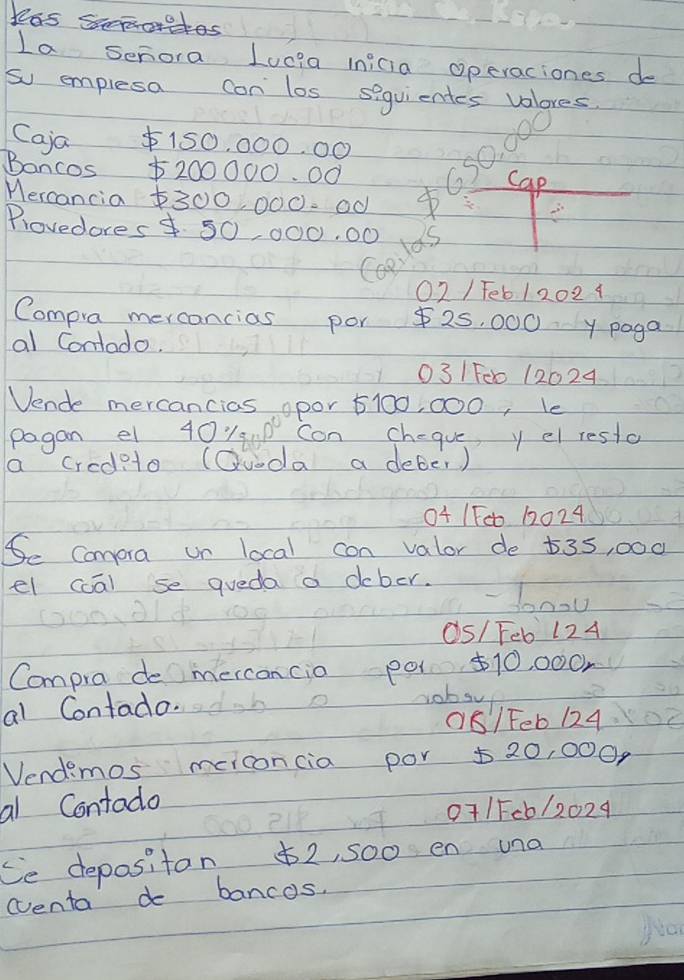 La Señora Lucia inicia operaciones de
su empresa con los siguientes valores.
Caja $150.000.00
Bancos $200000.00
Mercancia $300,000.00
Provedores $ 50,000.00
$650,000
Capitas
Cap
02/Feb/2024
Compra mercancias por $25.000 y paga
al Contado.
03/Feb/2024
Vende mercancias por $100,000, le
pagan el 40% con cheque y el resto
a credito (Queda a deber)
04/Feb/2024
Se compra un local con valor de $35,000
el cuál se queda a deber.
05/Feb/24
Compra de mercancia por $10.000
al Contado.
06/Feb/24
Vendemos mercancia por $20,000
al Contado
07/Feb/2024
Se depositan $2,500 en una
cuenta de bancos.